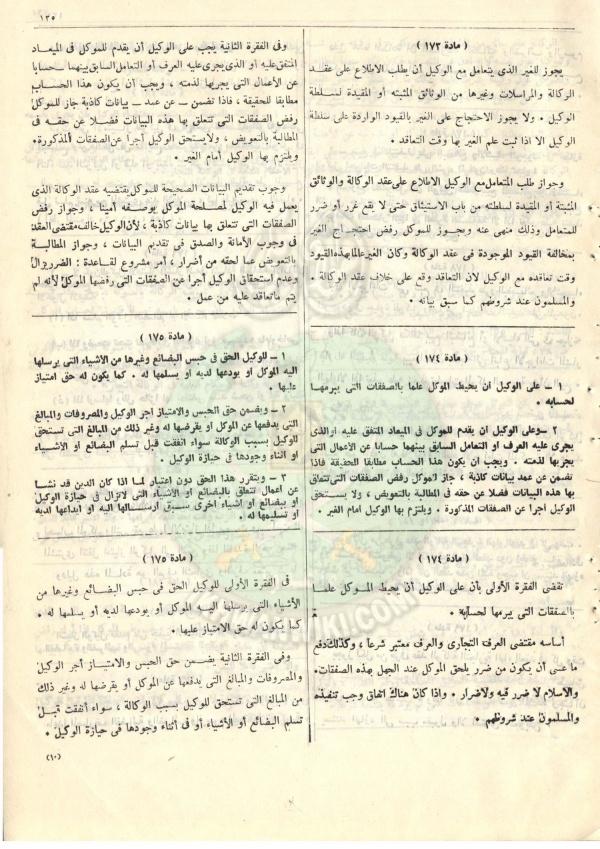 ١٣٥
( مادة ١٧٣ )
يجوز للغير الذى يتعامل مع الوكيل أن يطلب الاطلاع على عقد
الوكالة والمراسلات وغيرها من الوثائق المثبتة أو المقيدة لسلطة
الوكيل ٠ ولا يجوز الاحتجاج على الغير بالقيود الواردة على سلطة
الوكيل الا اذا ثبت علم الغير بها وقت التعاقد ٠
وجواز طلب المتعامل مع الوكيل الاطلاع على عقد الوكالة والوثائق
المثبتة أو المقيدة لسلطته من باب الاستيثاق حتى لا يقع غرر أو ضرر
للمتعامل وذلك منهى عنه ويجوز للموكل رفض احتجاج الغير
بمخالفة القيود الموجودة فى عقد الوكالة وكان الغير عالما بهذه القيود
وقت تعاقده مع الوكيل لان التعاقد وقع على خلاف عقد الوكالة ٠
والمسلمون عند شروطهم كما سبق بيانه ٠
( مادة ١٧٤ )
١ – على الوكيل أن يحيط الموكل علما بالصفقات التى يبرمها
لحسابه ٠
٢ – وعلى الوكيل ان يقدم للموكل فى الميعاد المتفق عليه او الذى
يجرى عليه العرف أو التعامل السابق بينهما حسابا عن الأعمال التى
يجريها لذمته ٠ ويجب أن يكون هذا الحساب مطابقا للحقيقة فاذا
تضمن عن عمد بيانات كاذبة ، جاز للموكل رفض الصفقات التى تتعلق
بها هذه البيانات فضلا عن حقه فى المطالبة بالتعويض ، ولا يستحق
الوكيل أجرا عن الصفقات المذكورة ٠ ويلتزم بها الوكيل أمام الغير ٠
( مادة ١٧٤ )
تقضى الفقرة الأولى بأن على الوكيل أن يحيط الموكل علما
بالصفقات التى يبرمها لحسابه ٠
أساسه مقتضى العرف التجارى والعرف معتبر شرعا ، وكذلك دفع
ما عسى أن يكون من ضرر يلحق الموكل عند الجهل بهذه الصفقات ٠
والاسلام لا ضرر فيه ولا ضرار ٠ واذا كان هناك اتفاق وجب تنفيذه
والمسلمون عند شروطهم ٠
وفى الفقرة الثانية يجب على الوكيل أن يقدم للموكل فى الميعاد
المتفق عليه أو الذى يجرى عليه العرف أو التعامل السابق بينهما حسابا
عن الأعمال التى يجريها لذمته ، ويجب أن يكون هذا الحساب
مطابقا للحقيقة ، فاذا تضمن – عن عمد – بيانات كاذبة جاز للموكل
رفض الصفقات التى تتعلق بها هذه البيانات فضلا عن حقه فى
المطالبة بالتعويض ، ولا يستحق الوكيل أجرا عن الصفقات المذكورة ٠
ويلتزم بها الوكيل أمام الغير ٠
وجوب تقديم البيانات الصحيحة للموكل يقتضيه عقد الوكالة الذى
يعمل فيه الوكيل لمصلحة الموكل بوصفه أمينا ، وجواز رفض
الصفقات التى تتعلق بها بيانات كاذبة ، لأن الوكيل خالف مقتضى العقد
فى وجوب الأمانة والصدق فى تقديم البيانات ، وجواز المطالبة
بالتعويض عما لحقه من أضرار ، أمر مشروع لقاعدة : الضرر يزال
وعدم استحقاق الوكيل أجرا عن الصفقات التى رفضها الموكل لأنه لم
يتم ما تعاقد عليه من عمل ٠
( مادة ١٧٥ )
١ – للوكيل الحق فى حبس البضائع وغيرها من الأشياء التى يرسلها
اليه الموكل أو يودعها لديه أو يسلمها له ٠ كما يكون له حق امتياز
عليها ٠
٢ – ويضمن حق الحبس والامتياز أجر الوكيل والمصروفات والمبالغ
التى يدفعها عن الموكل أو يقرضها له وغير ذلك من المبالغ التى تستحق
للوكيل بسبب الوكالة سواء أنفقت قبل تسلم البضائع أو الأشياء
أو أثناء وجودها فى حيازة الوكيل ٠
٣ – ويتقرر هذا الحق دون اعتبار لما اذا كان الدين قد نشأ
عن أعمال تتعلق بالبضائع أو الأشياء التى لا تزال فى حيازة الوكيل
أو ببضائع أو أشياء أخرى سبق ارسالها اليه أو ايداعها لديه
أو تسليمها له ٠
( مادة ١٧٥ )
فى الفقرة الأولى للوكيل الحق فى حبس البضائع وغيرها من
الأشياء التى يرسلها اليه الموكل أو يودعها لديه أو يسلمها له ٠
كما يكون له حق الامتياز عليها ٠
وفى الفقرة الثانية يضمن حق الحبس والامتياز أجر الوكيل
والمصروفات والمبالغ التى يدفعها عن الموكل أو يقرضها له وغير ذلك
من المبالغ التى تستحق للوكيل بسبب الوكالة ، سواء أنفقت قبل
تسلم البضائع أو الأشياء أو فى أثناء وجودها فى حيازة الوكيل ٠
(١٠)